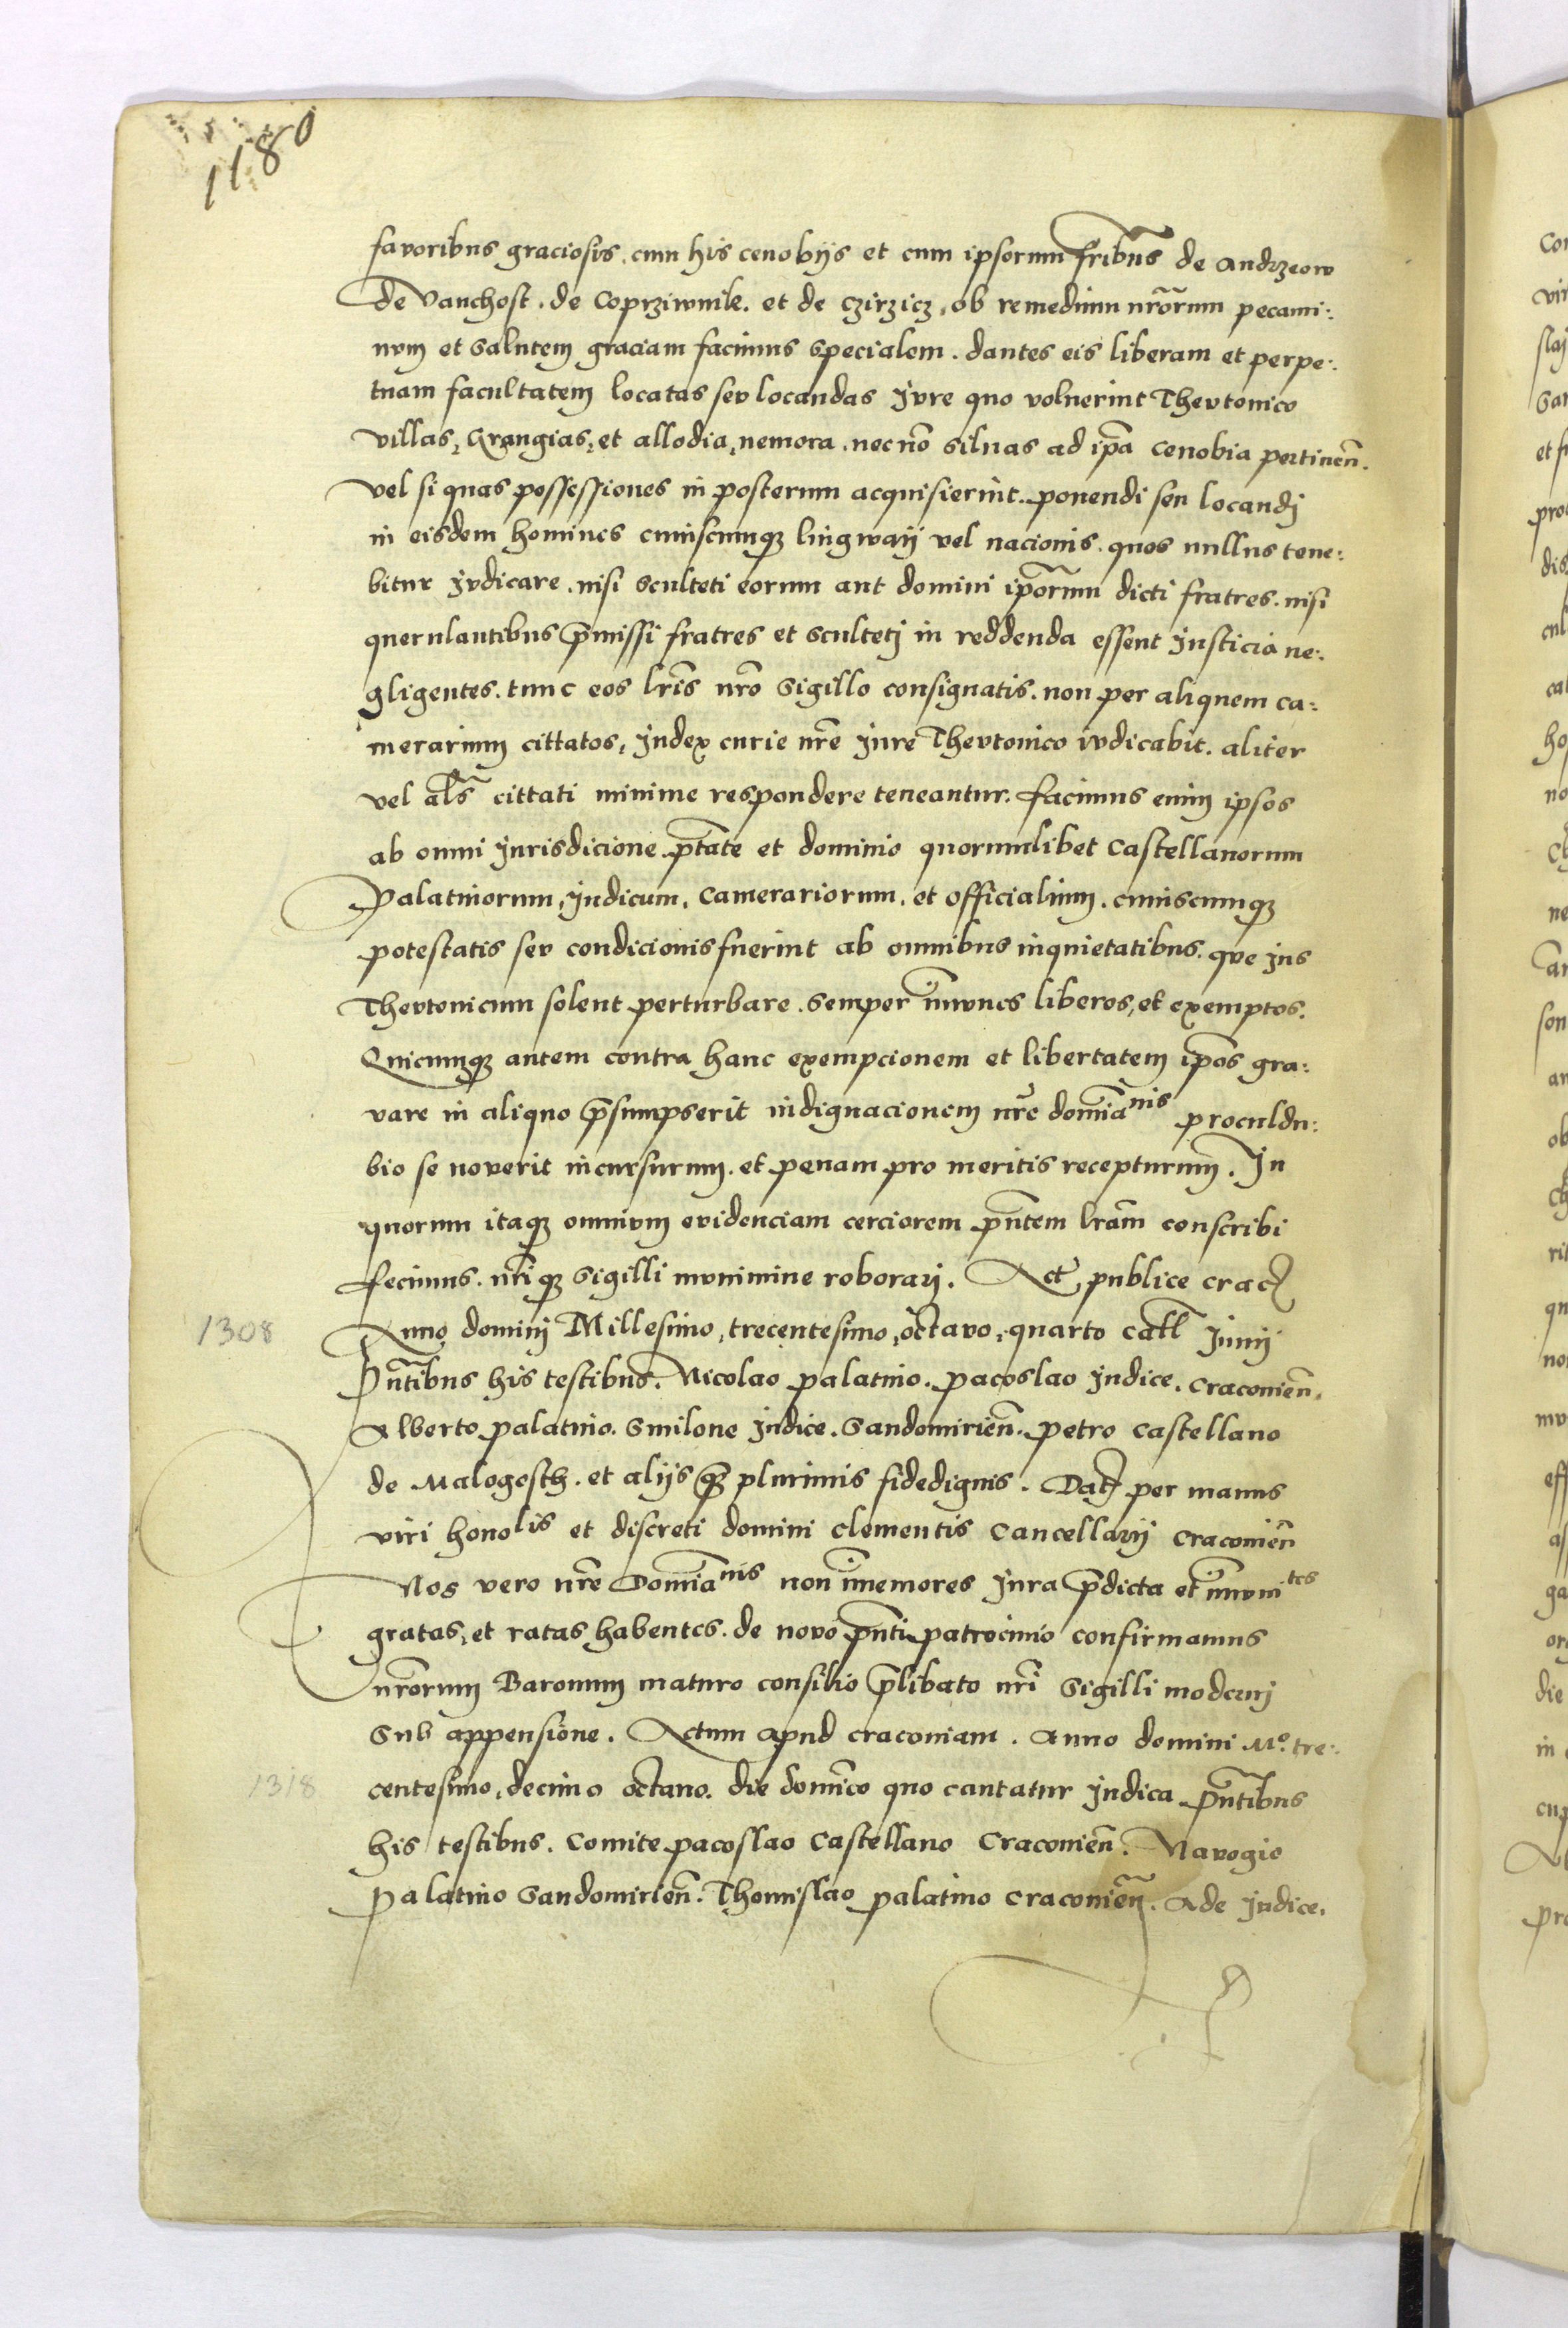 1180
favoribus graciosis, cum his cenobijs et cum ipsorum fribus de Andrzeow
de Vanchost. de Coprziwnik. et de Czirzicz, ob remedium nrorum pecami:
num et salutem graciam facimus specialem. dantes eis liberam et perpe:
tuam facultatem locatas seu locandas Jure quo voluerint Theutonico
villas, Grangias, et allodia, nemora. necno silvas ad ipa cenobia pertinen.
vel si quas possessiones in posterum acquisierint. ponendi seu locandj
in eisdem homines cuiuscumq lingwaij vel nacionis. quos nullus tene:
bitur judicare. nisi sculteti eorum aut domini iporum dicti fratres. nisi
querulantibus pmissi fratres et scultetj in reddenda essent Justicia ne:
gligentes. tunc eos lris nro Sigillo consignatis. non per aliquem ca:
merarium cittatos, Judex curie nre Jure Theutonico iudicabit. aliter
vel als cittati minime respondere teneantur. Facimus enim ipsos
ab omni Jurisdicione ptate et dominio quorumlibet Castellanorum
Palatinorum, Judicum, Camerariorum. et Officialium. cuiuscumq
potestatis seu condicionis fuerint ab omnibus inquietatibus. que Jus
Theutonicum solent perturbare. Semper imunes liberos, et exemptos.
Quicumq autem contra hanc exempcionem et libertatem ipos gra:
vare in aliquo psumpserit indignacionem nre domianis proculdu:
bio se noverit incursurum. et penam pro meritis recepturum. In
quorum itaq omnium evidenciam cerciorem pntem lram conscribi
fecimus. nriq Sigilli munimine roborarj. Act publice Crac
1308
Anno dominj Millesimo, trecentesimo, octavo, quarto Call Junij
Pntibus his testibus. Nicolao palatino. pacoslao Judice. Craconien.
Alberto palatino. Smilone Judice. Sandomirien. Petro Castellano
de Malogosch. et alijs q plurimis fidedignis. Dat per manus
viri honolis et discreti domini Clementis Cancellarij Craconien
Nos vero nre Domianis non imemores Jura pdicta et imunites
gratas, et ratas habentes. de novo pnti patrocinio confirmamus
nrorum Baronum maturo consilio plibato nri Sigilli modernj
Sub appensione. Actum apud craconiam. Anno domini Mo. tre:
1318
centesimo, decimo octavo. die dominco quo cantatur Judica pntibus
his testibus. Comite pacoslao Castellano Craconien. Navogio
palatino Sandomirien. Thomislao palatino Craconien. Ade Judice.